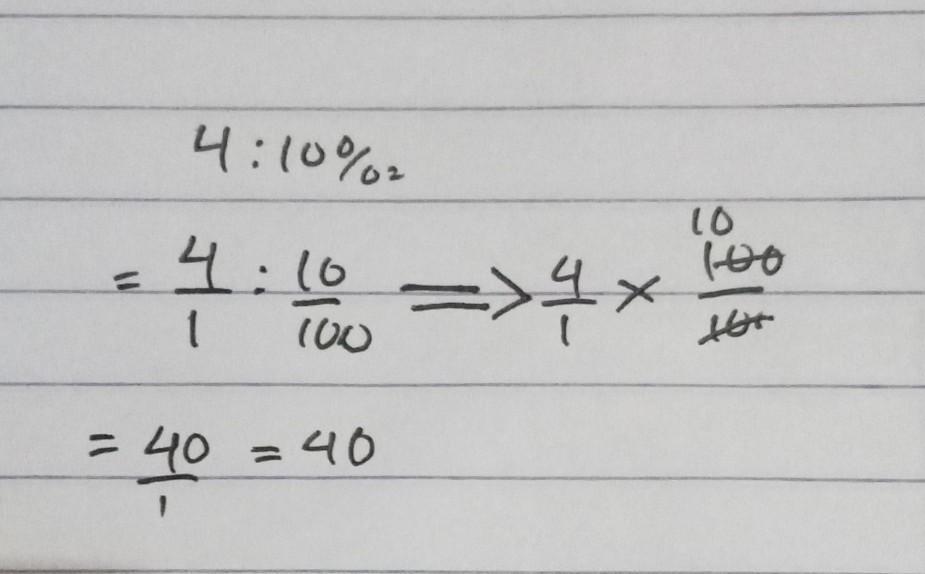 4 : 10% =
= 4/1 : 10/100 => 4/1 × 10 100/10
= 40/1 = 40